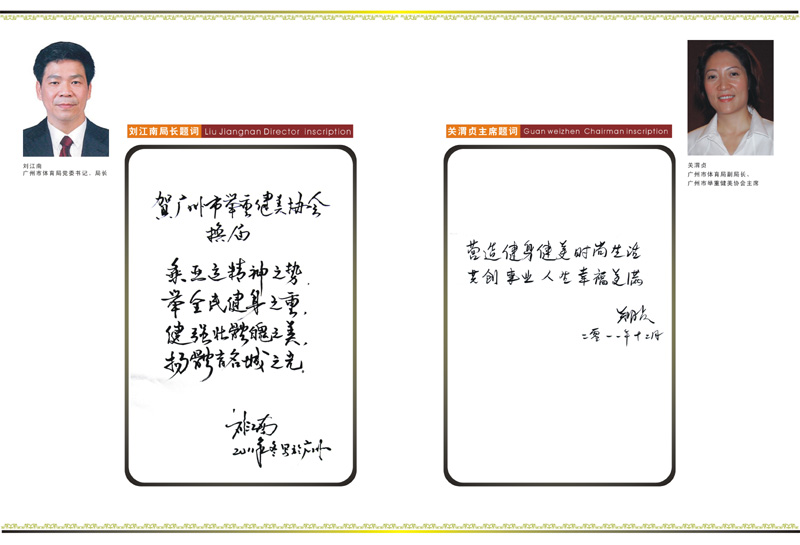 刘江南局长题词 Liu Jiangnan Director inscription
刘江南
广州市体育局党委书记、局长
贺广州市举重健美协会
换届
乘亚运精神之势,
举全民健身之重,
健强壮體魄之美,
扬體育名城之光.
刘江南
2011年冬 于广州
关渭贞主席题词 Guan weizhen Chairman inscription
关渭贞
广州市体育局副局长、
广州市举重健美协会主席
营造健身健美时尚生活
共创事业 人生幸福美满
二零一一年十二月